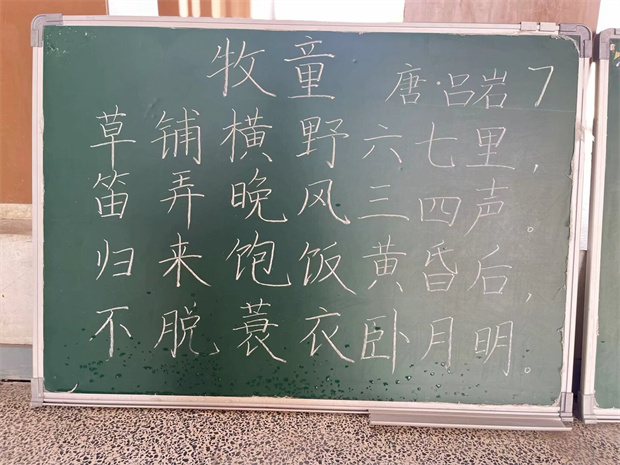 牧童
唐·吕岩 7
草铺横野六七里,
笛弄晚风三四声。
归来饱饭黄昏后,
不脱蓑衣卧月明。